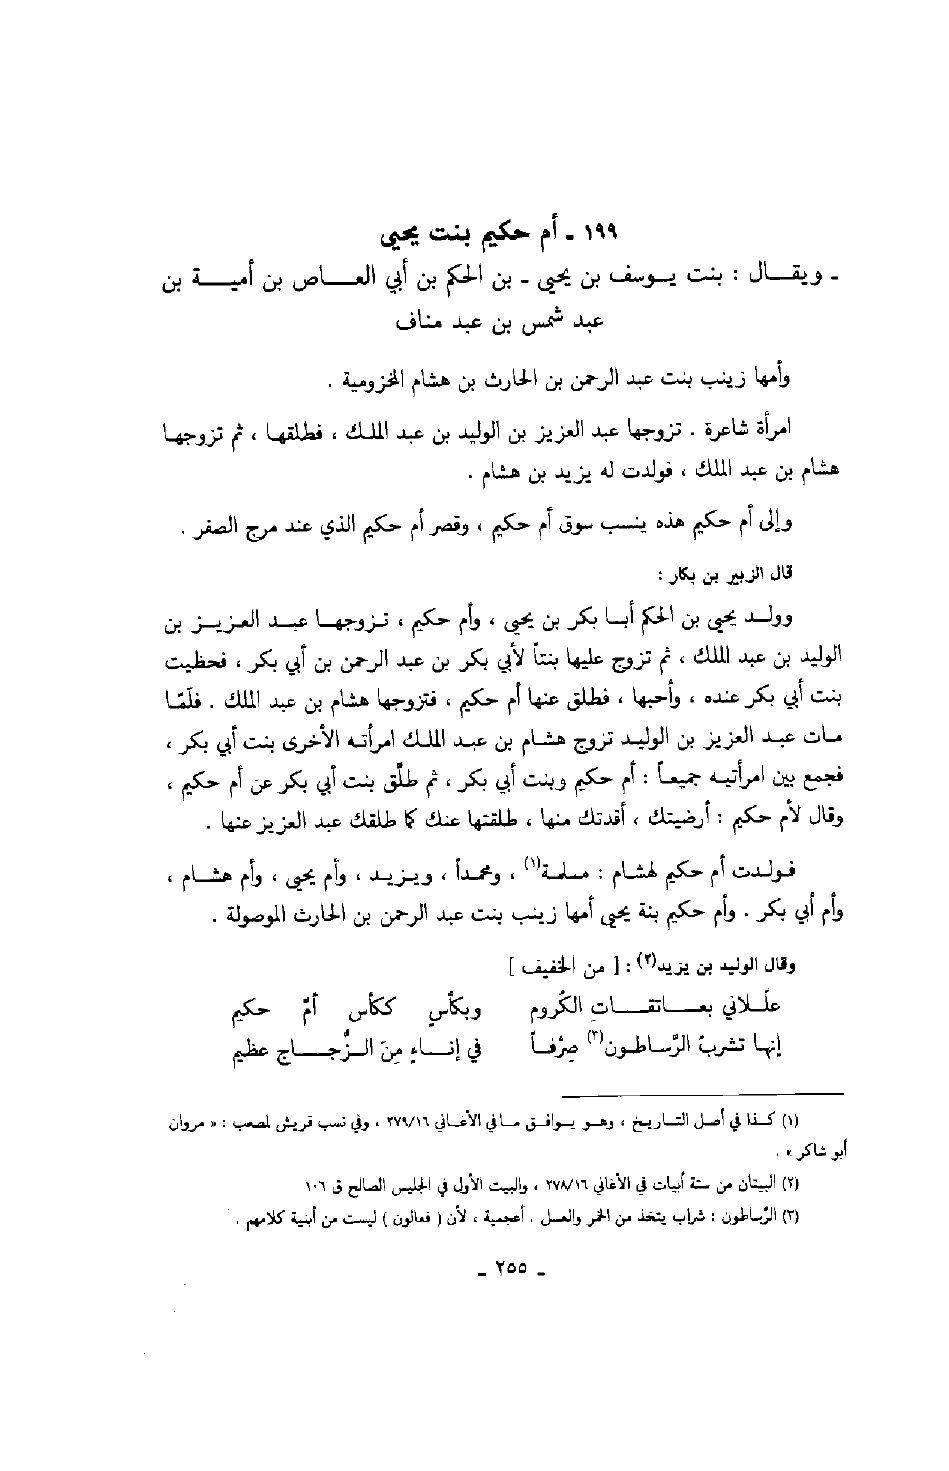 ١٩٩ ـ أم حكيم بنت يحيى
ـ ويقال : بنت يوسف بن يحيى ـ بن الحكم بن أبي العاص بن أمية بن
عبد شمس بن عبد مناف
وأمها زينب بنت عبد الرحمن بن الحارث بن هشام المخزومية .
امرأة شاعرة . تزوجها عبد العزيز بن الوليد بن عبد الملك ، فطلقها ، ثم تزوجها
هشام بن عبد الملك ، فولدت له يزيد بن هشام .
وإلى أم حكيم هذه ينسب سوق أم حكيم ، وقصر أم حكيم الذي عند مرج الصفر .
قال الزبير بن بكار :
وولد يحيى بن الحكم أبا بكر بن يحيى ، وأم حكيم ، تزوجها عبد العزيز بن
الوليد بن عبد الملك ، ثم تزوج عليها بنتاً لأبي بكر بن عبد الرحمن بن أبي بكر ، فحظيت
بنت أبي بكر عنده ، وأحبها ، فطلق عنها أم حكيم ، فتزوجها هشام بن عبد الملك . فلمّا
مات عبد العزيز بن الوليد تزوج هشام بن عبد الملك امرأته الأخرى بنت أبي بكر ،
فجمع بين امرأتيه جميعاً : أم حكيم وبنت أبي بكر ، ثم طلّق بنت أبي بكر عن أم حكيم ،
وقال لأم حكيم : أرضيتك ، أقدتك منها ، طلقتها عنك كما طلقك عبد العزيز عنها .
فولدت أم حكيم لهشام : مسلمة(١) ، ومحمداً ، ويزيد ، وأم يحيى ، وأم هشام ،
وأم أبي بكر . وأم حكيم بنة يحيى أمها زينب بنت عبد الرحمن بن الحارث الموصولة .
وقال الوليد بن يزيد(٢) : [ من الخفيف ]
علّلاني بعاتقات الكُروم وبكأسٍ ككأس أمّ حكيم
إنها تشربُ الرّساطون(٣) صِرْفاً في إناءٍ مِنَ الزُّجاج عظيم
(١) كذا في أصل التاريخ ، وهو يوافق ما في الأغاني ٣٧٩/١٦ ، وفي نسب قريش لمصعب : « مروان
أبو شاكر » .
(٢) البيتان من ستة أبيات في الأغاني ٢٧٨/١٦ ، والبيت الأول في الجليس الصالح ق ١٠٦
(٣) الرّساطون : شراب يتخذ من الخمر والعسل . أعجمية ، لأن ( فعالون ) ليست من أبنية كلامهم .
ـ ٢٥٥ ـ